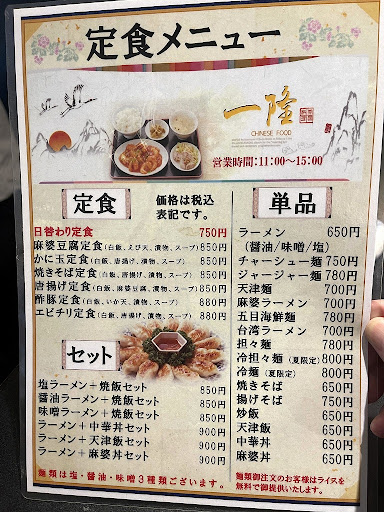 定食メニュー
一隆
CHINESE FOOD
営業時間:11:00～15:00
定食
価格は税込
表記です。
日替わり定食 750円
麻婆豆腐定食(白飯、えび天、漬物、スープ) 850円
かに玉定食(白飯、唐揚げ、漬物、スープ) 850円
焼きそば定食(白飯、唐揚げ、漬物、スープ) 850円
唐揚げ定食(白飯、麻婆豆腐、漬物、スープ) 850円
酢豚定食(白飯、いか天、漬物、スープ) 880円
エビチリ定食(白飯、唐揚げ、漬物、スープ) 880円
セット
塩ラーメン＋焼飯セット 850円
醤油ラーメン＋焼飯セット 850円
味噌ラーメン＋焼飯セット 850円
ラーメン＋中華丼セット 900円
ラーメン＋天津飯セット 900円
ラーメン＋麻婆丼セット 900円
麺類は塩・醤油・味噌３種類ございます。
単品
ラーメン 650円
(醤油/味噌/塩)
チャーシュー麺 750円
ジャージャー麺 780円
天津麺 700円
麻婆ラーメン 700円
五目海鮮麺 780円
台湾ラーメン 700円
担々麺 780円
冷担々麺(夏限定) 800円
冷麺(夏限定) 800円
焼きそば 650円
揚げそば 750円
炒飯 650円
天津飯 650円
中華丼 650円
麻婆丼 650円
麺類御注文のお客様はライスを
無料で御提供いたします。